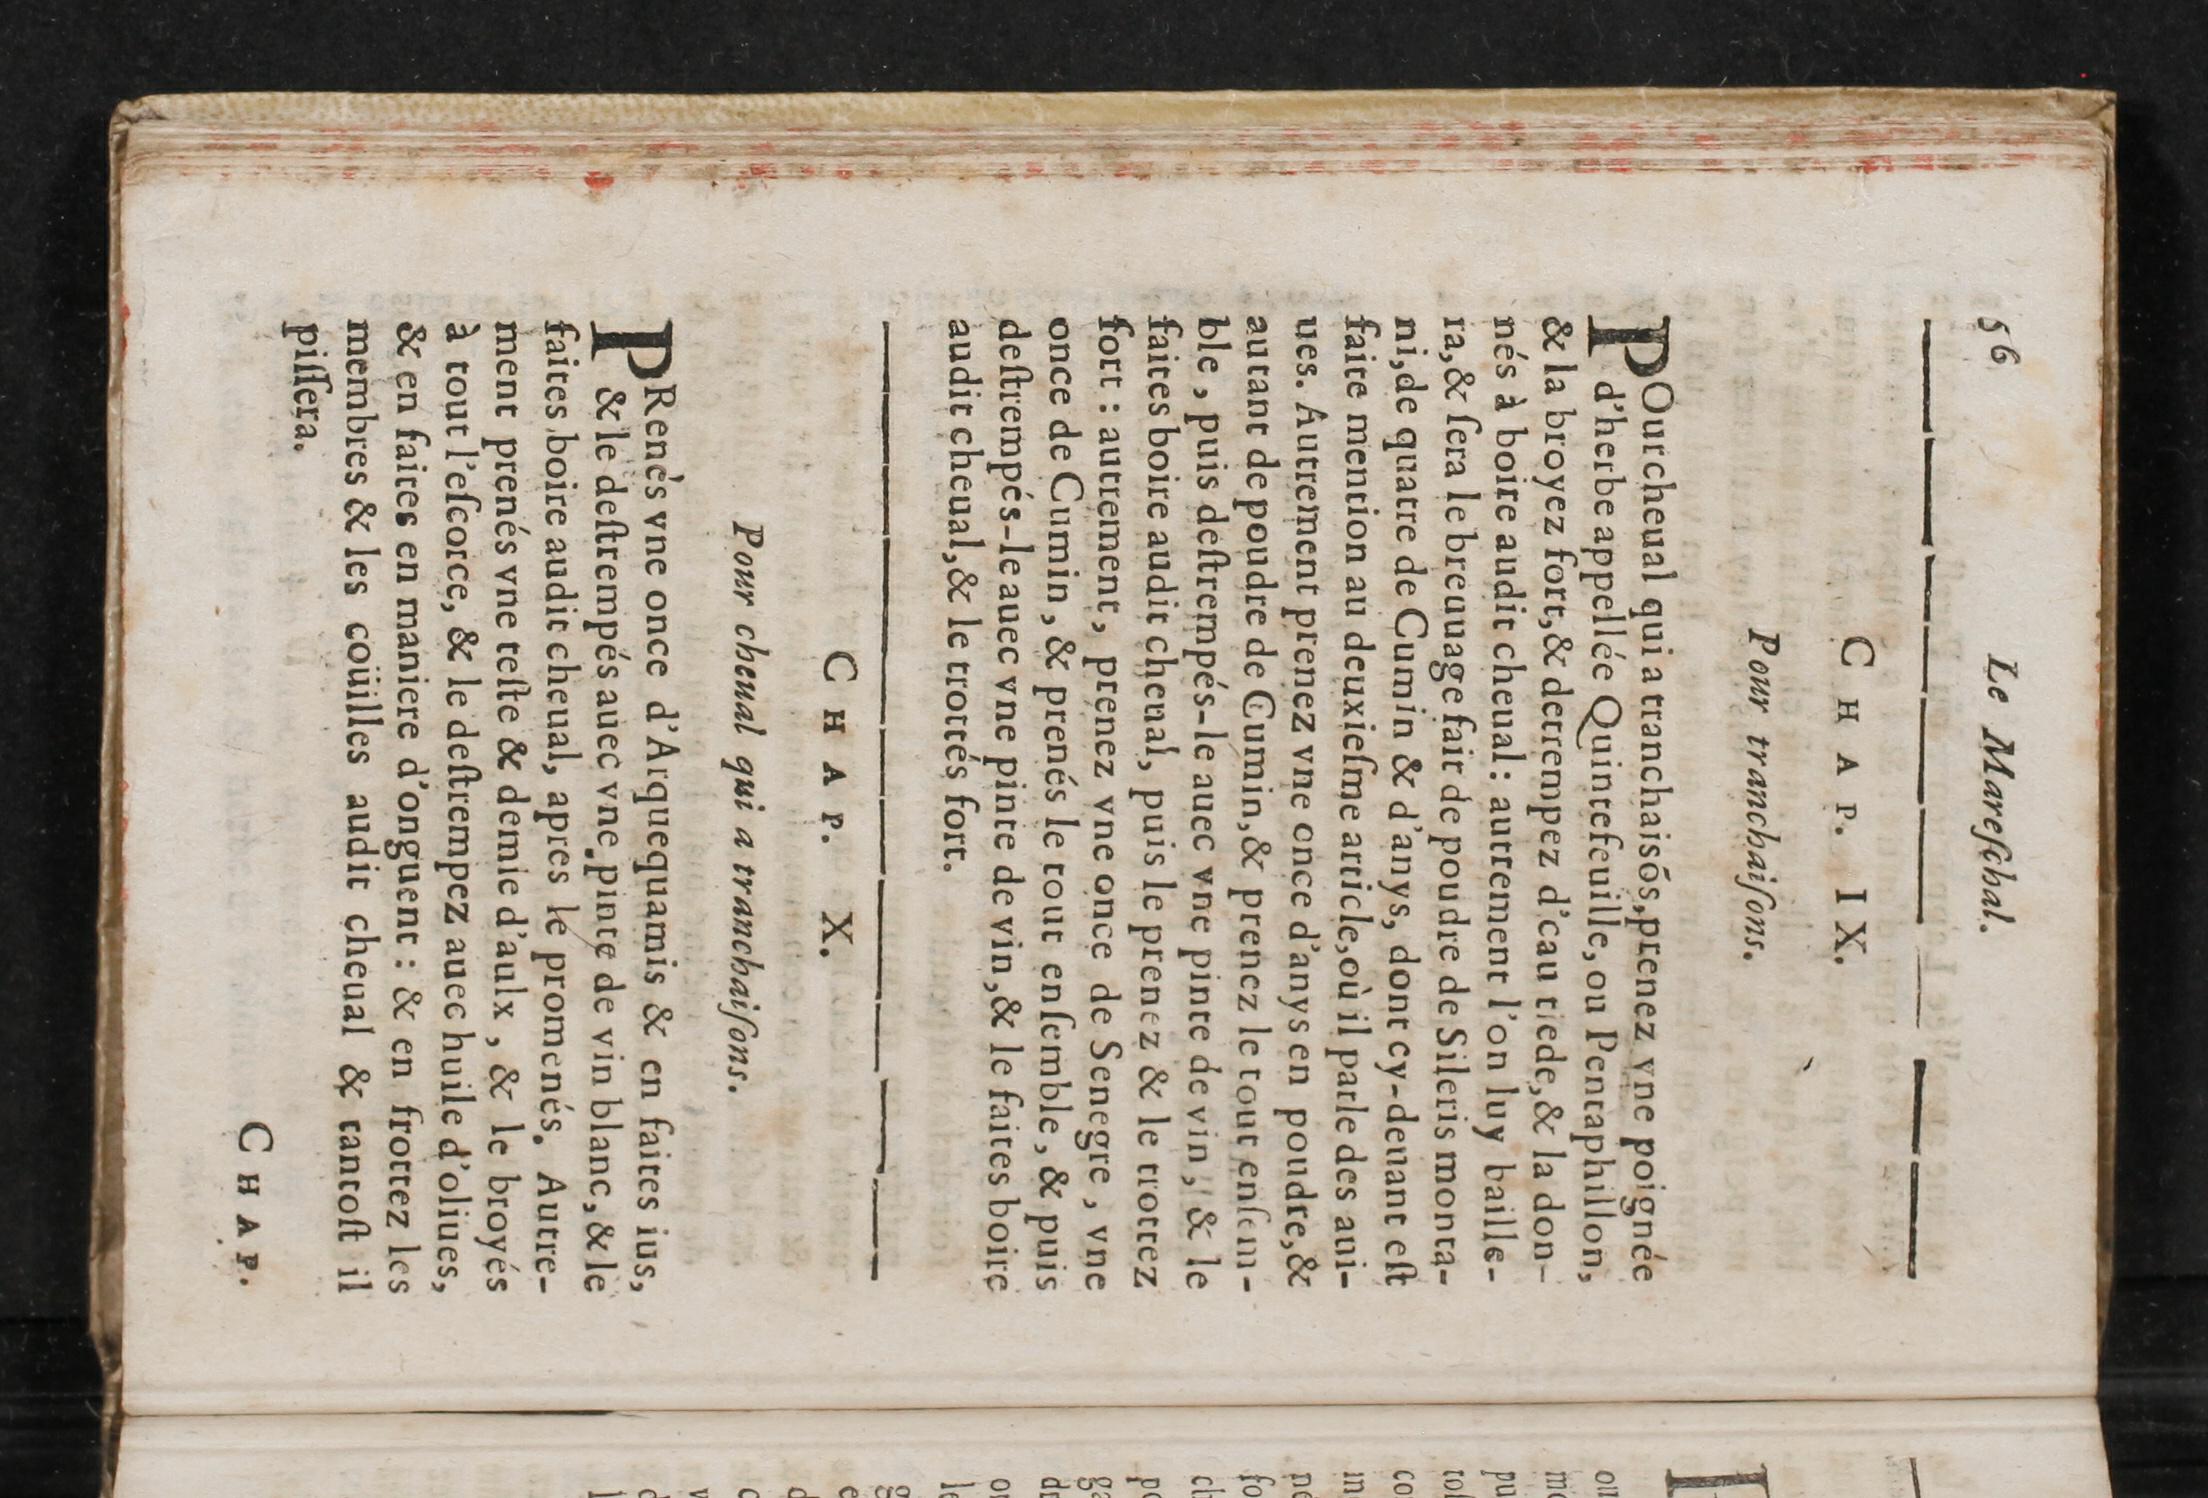 56 Le Mareſchal.
CHAP. IX.
Pour tranchaiſons.
POur cheual qui a tranchaisõs, prenez vne poignée
d'herbe appellée Quintefeuille, ou Pentaphillon,
& la broyez fort, & detrempez d'eau tiede, & la don-
nés à boire audit cheual: autrement l'on luy baille-
ra, & ſera le breuuage fait de poudre de Sileris monta-
ni, de quatre de Cumin & d'anys, dont cy-deuant eſt
faite mention au deuxieſme article, où il parle des aui-
ues. Autrement prenez vne once d'anys en poudre, &
autant de poudre de Cumin, & prenez le tout enſem-
ble, puis deſtrempés-le auec vne pinte de vin, & le
faites boire audit cheual, puis le prenez & le trottez
fort: autrement, prenez vne once de Senegre, vne
once de Cumin, & prenés le tout enſemble, & puis
deſtrempés-le auec vne pinte de vin, & le faites boire
audit cheual, & le trottés fort.
CHAP. X.
Pour cheual qui a tranchaiſons.
PRenés vne once d'Arquequamis & en faites ius,
& le deſtrempés auec vne pinte de vin blanc, & le
faites boire audit cheual, apres le promenés. Autre-
ment prenés vne teſte & demie d'aulx, & le broyés
à tout l'eſcorce, & le deſtrempez auec huile d'oliues,
& en faites en maniere d'onguent: & en frottez les
membres & les coüilles audit cheual & tantoſt il
piſſera.
CHAP.